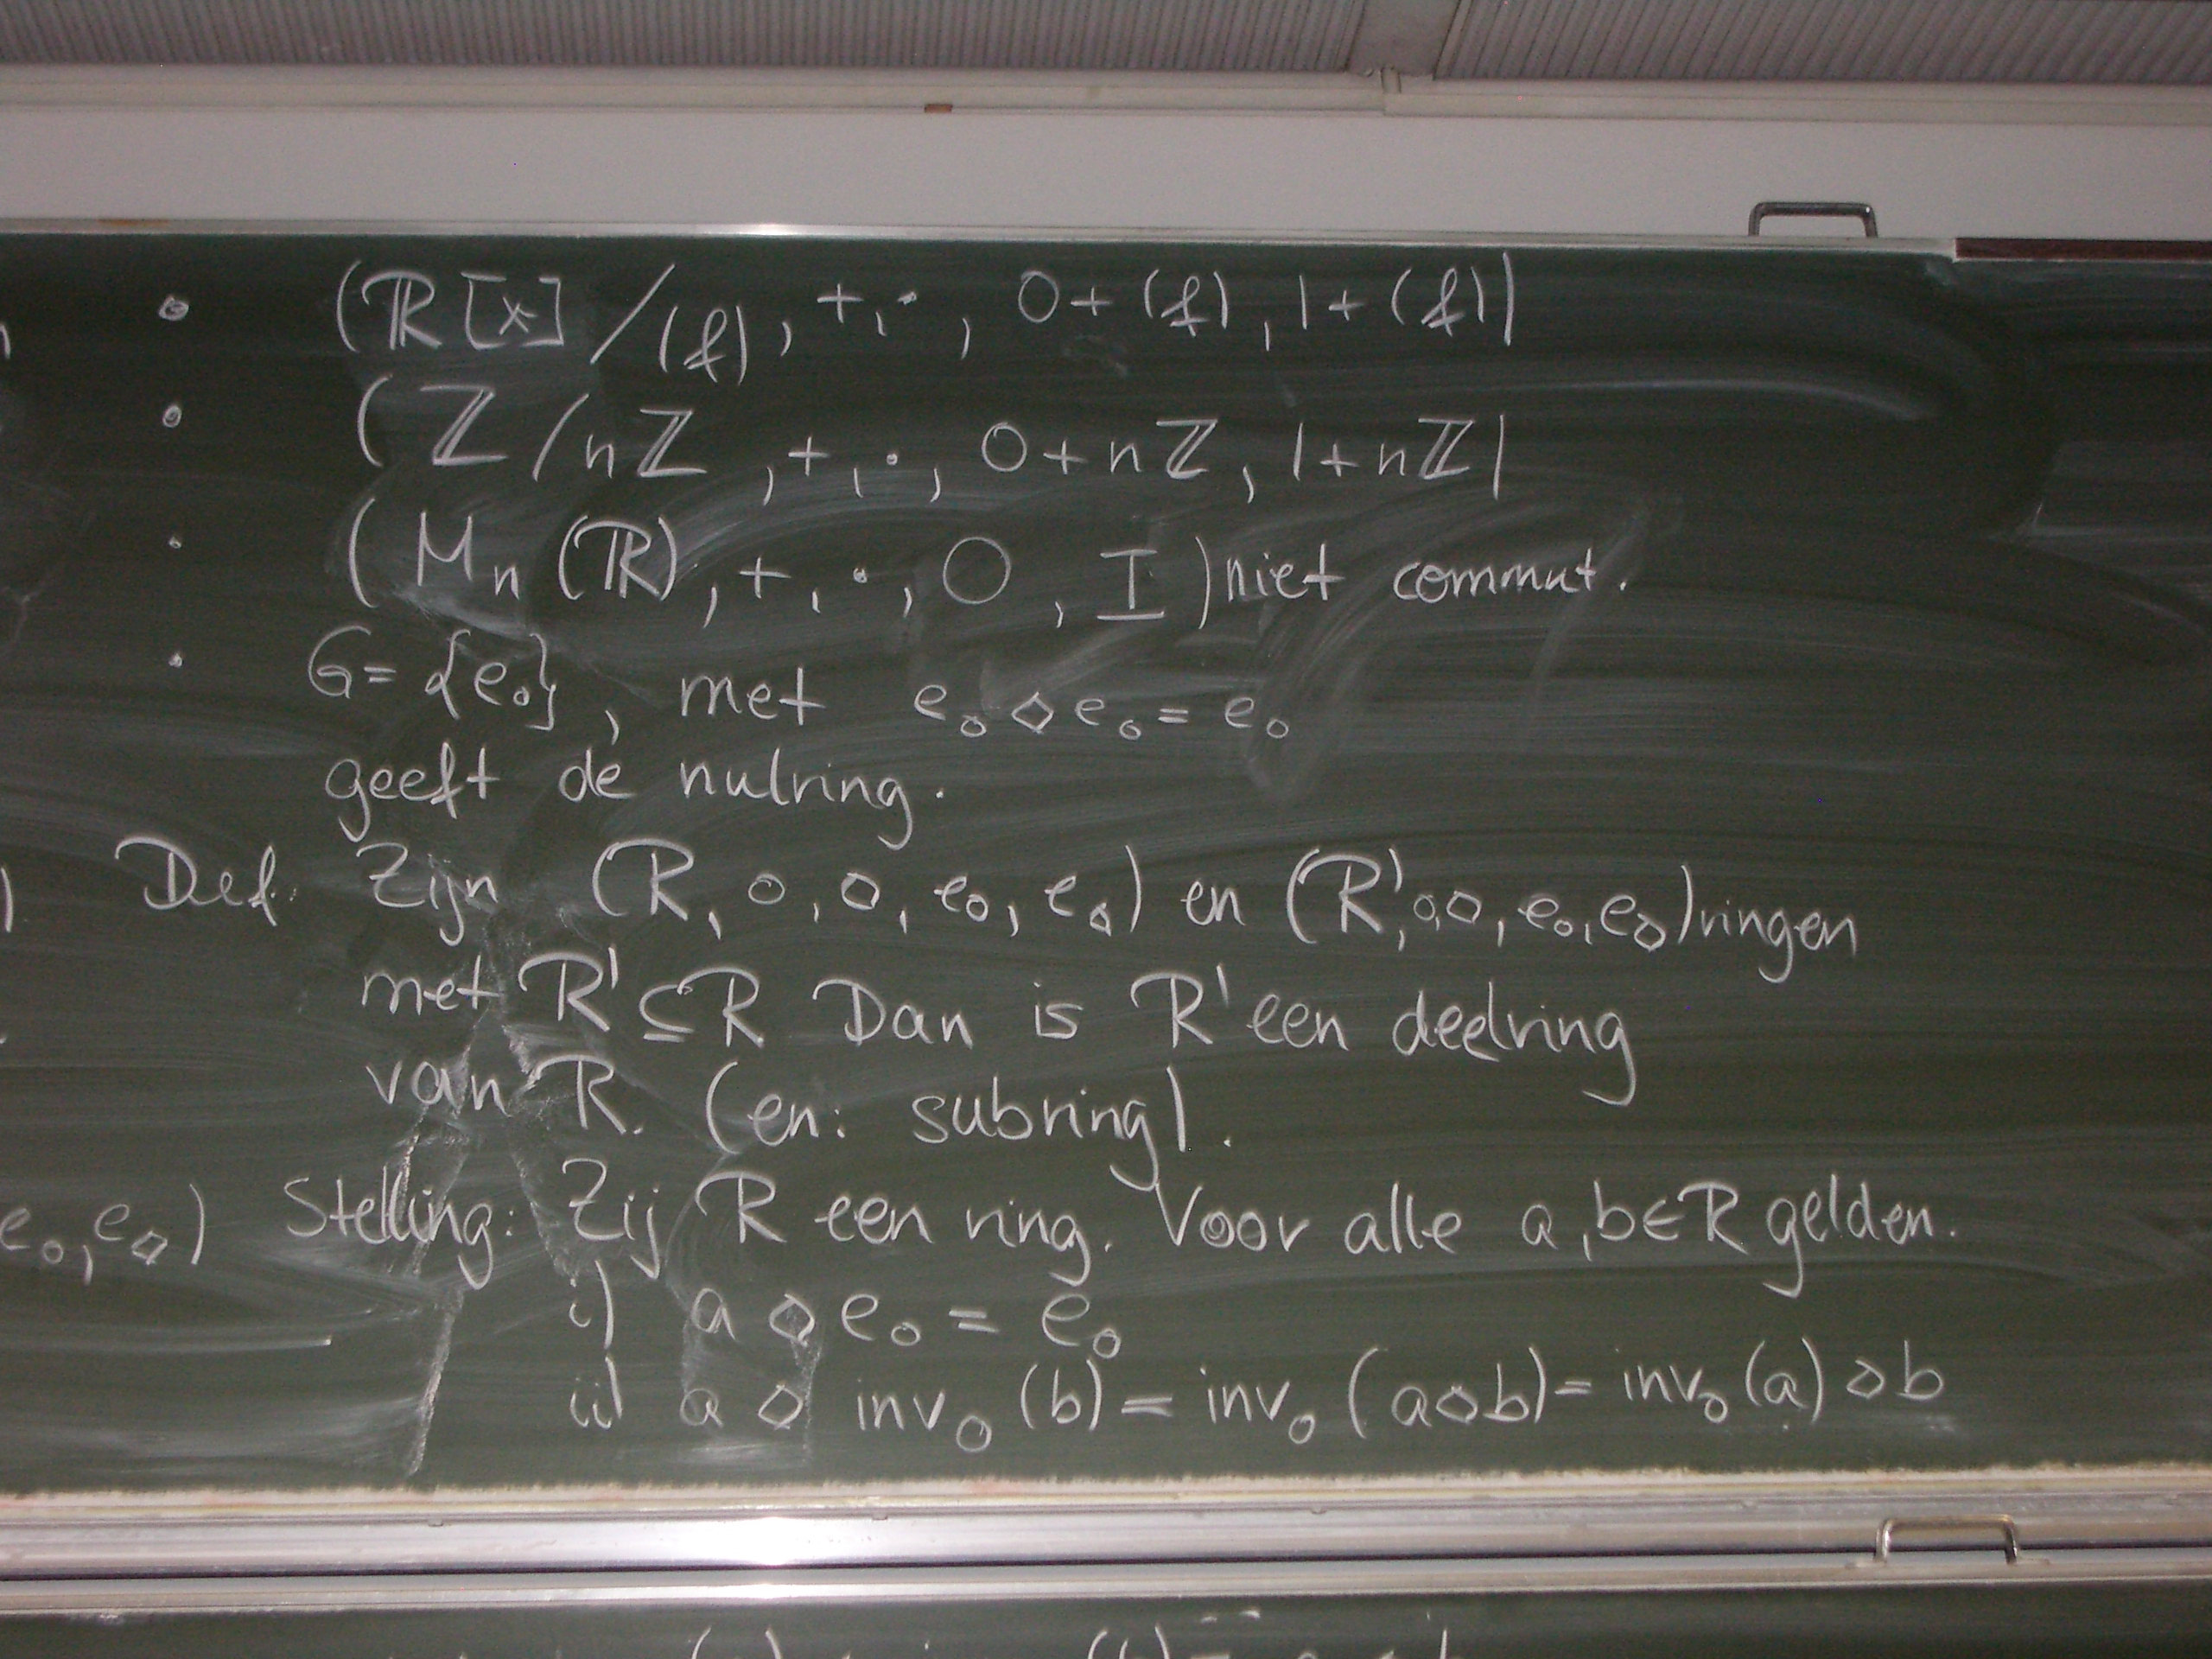 • (ℝ[x]/(f), +, ·, 0+(f), 1+(f))
• (ℤ/nℤ, +, ·, 0+nℤ, 1+nℤ)
• (Mₙ(ℝ), +, ·, O, I) niet commut.
• G = {e∘}, met e∘ ◇ e∘ = e∘
geeft de nulring.
Def. Zijn (R, ∘, ◇, e∘, e◇) en (R', ∘, ◇, e∘, e◇) ringen
met R' ⊆ R Dan is R' een deelring
van R. (en: subring).
e∘, e◇)
Stelling: Zij R een ring. Voor alle a, b ∈ R gelden.
i) a ◇ e∘ = e∘
ii) a ◇ inv∘(b) = inv∘(a◇b) = inv∘(a) ◇ b